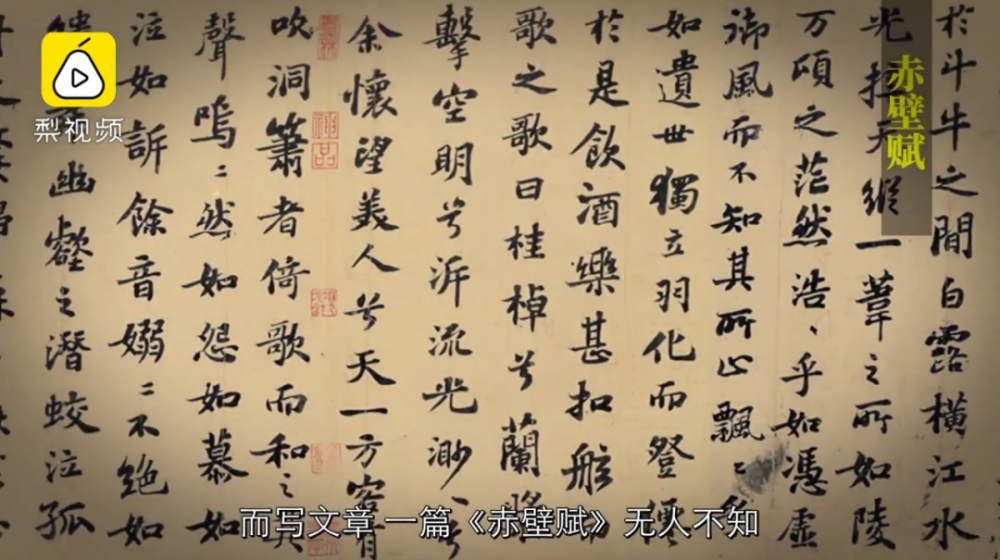 梨视频
赤壁赋
於斗牛之間白露橫江水
光接天縱一葦之所如陵
万頃之茫然浩、乎如憑虛
御風而不知其所止飄〻乎
如遺世獨立羽化而登僊
於是飲酒樂甚扣舷
歌之歌曰桂棹兮蘭槳
擊空明兮泝流光渺〻兮
余懷望美人兮天一方客有
吹洞簫者倚歌而和之其
聲嗚〻然如怨如慕如
泣如訴餘音嫋〻不絕如
幽壑之潛蛟泣孤
而写文章 一篇《赤壁赋》无人不知